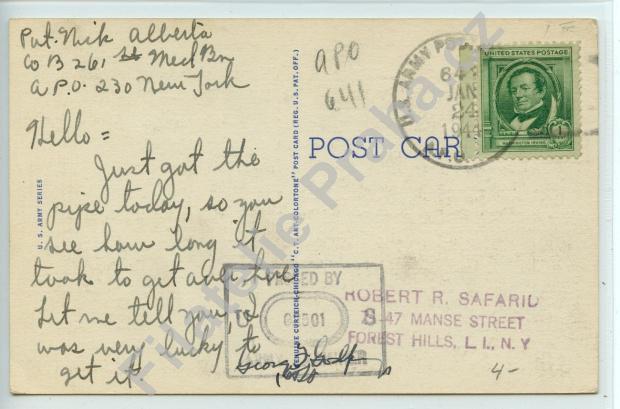 Pvt. Nick Alberta
Co B 261 st Med Bn
A.P.O. 230 New York
Hello =
Just got the
pipe today, so you
see how long it
took to get over here
Let me tell you, I
was very lucky to
get it.
U. S. ARMY SERIES
GENUINE CURTEICH-CHICAGO "C.T. ART-COLORTONE" POST CARD (REG. U.S. PAT. OFF.)
APO
641
POST CAR
U.S. ARMY
641
JAN
24
194
UNITED STATES POSTAGE
WASHINGTON IRVING
1
BY
ROBERT R. SAFARID
47 MANSE STREET
FOREST HILLS, L. I., N. Y
4-
Filatelie Praha.cz